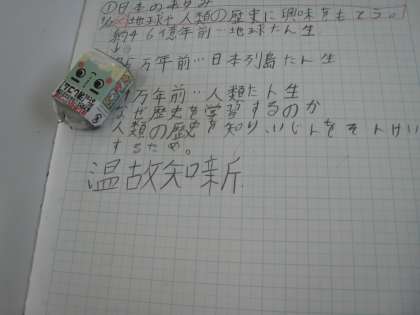 ①日本のあゆみ
地球や人類の歴史に興味をもとう。
約46億年前…地球たん生
万年前…日本列島たん生
万年前…人類たん生
なぜ歴史を学習するのか
人類の歴史を知り、いじんをそんけい
するため。
温故知新